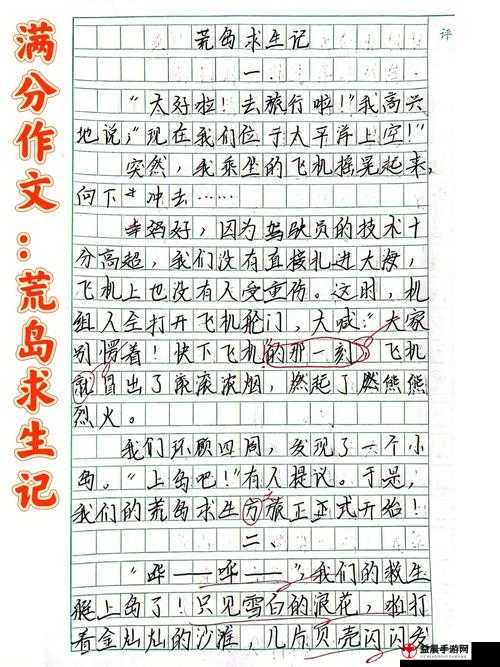 满分作文：荒岛求生记
评
荒岛求生记
一、
“太好啦！去旅行啦！”我高兴
地说，“现在我们位于太平洋上空！”
突然，我乘坐的飞机摇晃起来，
向下冲去……
好，因为驾驶员的技术十
分高超，我们没有直接扎进大海，
飞机上也没有人受重伤。这时，机
组人全打开飞机舱门，大喊：“大家
别愣着！快下飞机的那一刻，飞机
就冒出了滚滚浓烟，燃起了燃熊熊
烈火。
我们环顾四周，发现了一个小
岛。“上岛吧！”有人提议。于是，
我们的荒岛求生旅正正式开始！
二、
“哗——哗——”，我们的救生
艇上岛了！只见雪白的浪花，拍打
着金灿灿的沙滩，几片贝壳闪闪发
益晨手游网